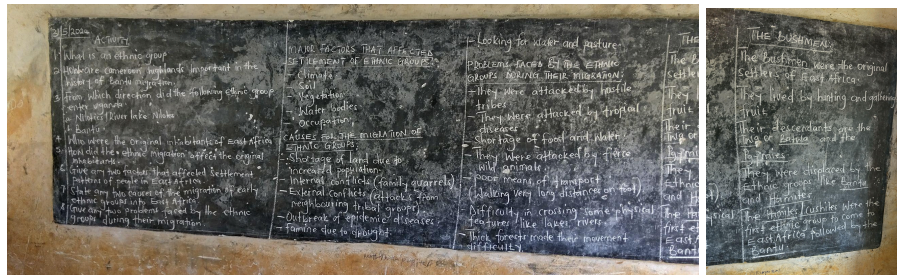 21/5/2024
ACTIVITY
1 What is an ethnic group
2 How are cameroon highlands important in the
history of Bantu migration
3 from which direction did the following ethnic group
enter uganda
a Nilotics / River lake Nilotes
b Bantu
4 Who were the original inhabitants of East Africa
5 How did the ethnic migration affect the original
inhabitants.
6 Give any two factors that affected settlement
pattern of people in East Africa
7 State any two causes of the migration of early
ethnic groups into East Africa
8 Give any two problems faced by the ethnic
groups during their migration.
MAJOR FACTORS THAT AFFECTED
SETTLEMENT OF ETHNIC GROUPS:
- Climate
- Soil
- Vegetation
- Water bodies
- Occupation.
CAUSES FOR THE MIGRATION OF
ETHNIC GROUPS:
- Shortage of land due to
increased population.
- Internal conflicts (family quarrels)
- External conflicts (attacks from
neighbouring tribal groups)
- Outbreak of epidemic diseases
- famine due to drought.
- Looking for water and pasture.
PROBLEMS FACED BY THE ETHNIC
GROUPS DURING THEIR MIGRATION:
- They were attacked by hostile
tribes
- They were attacked by tropical
diseases
- Shortage of food and water
- They were attacked by fierce
wild animals.
- Poor means of transport
(Walking very long distances on foot)
- Difficulty in crossing some physical
features like lakes, rivers
- Thick forests made their movement
difficulty
THE BUSHMEN:
The Bushmen were the original
settlers of East Africa
They lived by hunting and gathering
fruit
Their descendants are the
Twa or Batwa and the
Pygmies
They were displaced by the
Ethnic groups like Bantu
and Hamites
The Hamites/Cushites were the
first ethnic group to come to
East Africa followed by the
Bantu